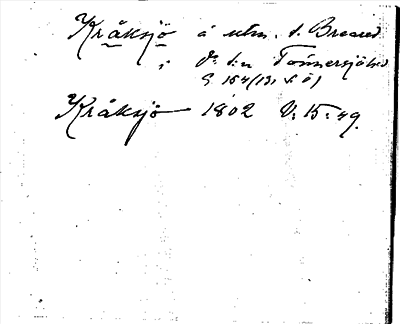 Kråksjö å utm. t. Breared
i Ds. s:n Tönnersjö hd
S 154 (13, S Ö)
Kråksjö 1802 V: 15: 49.